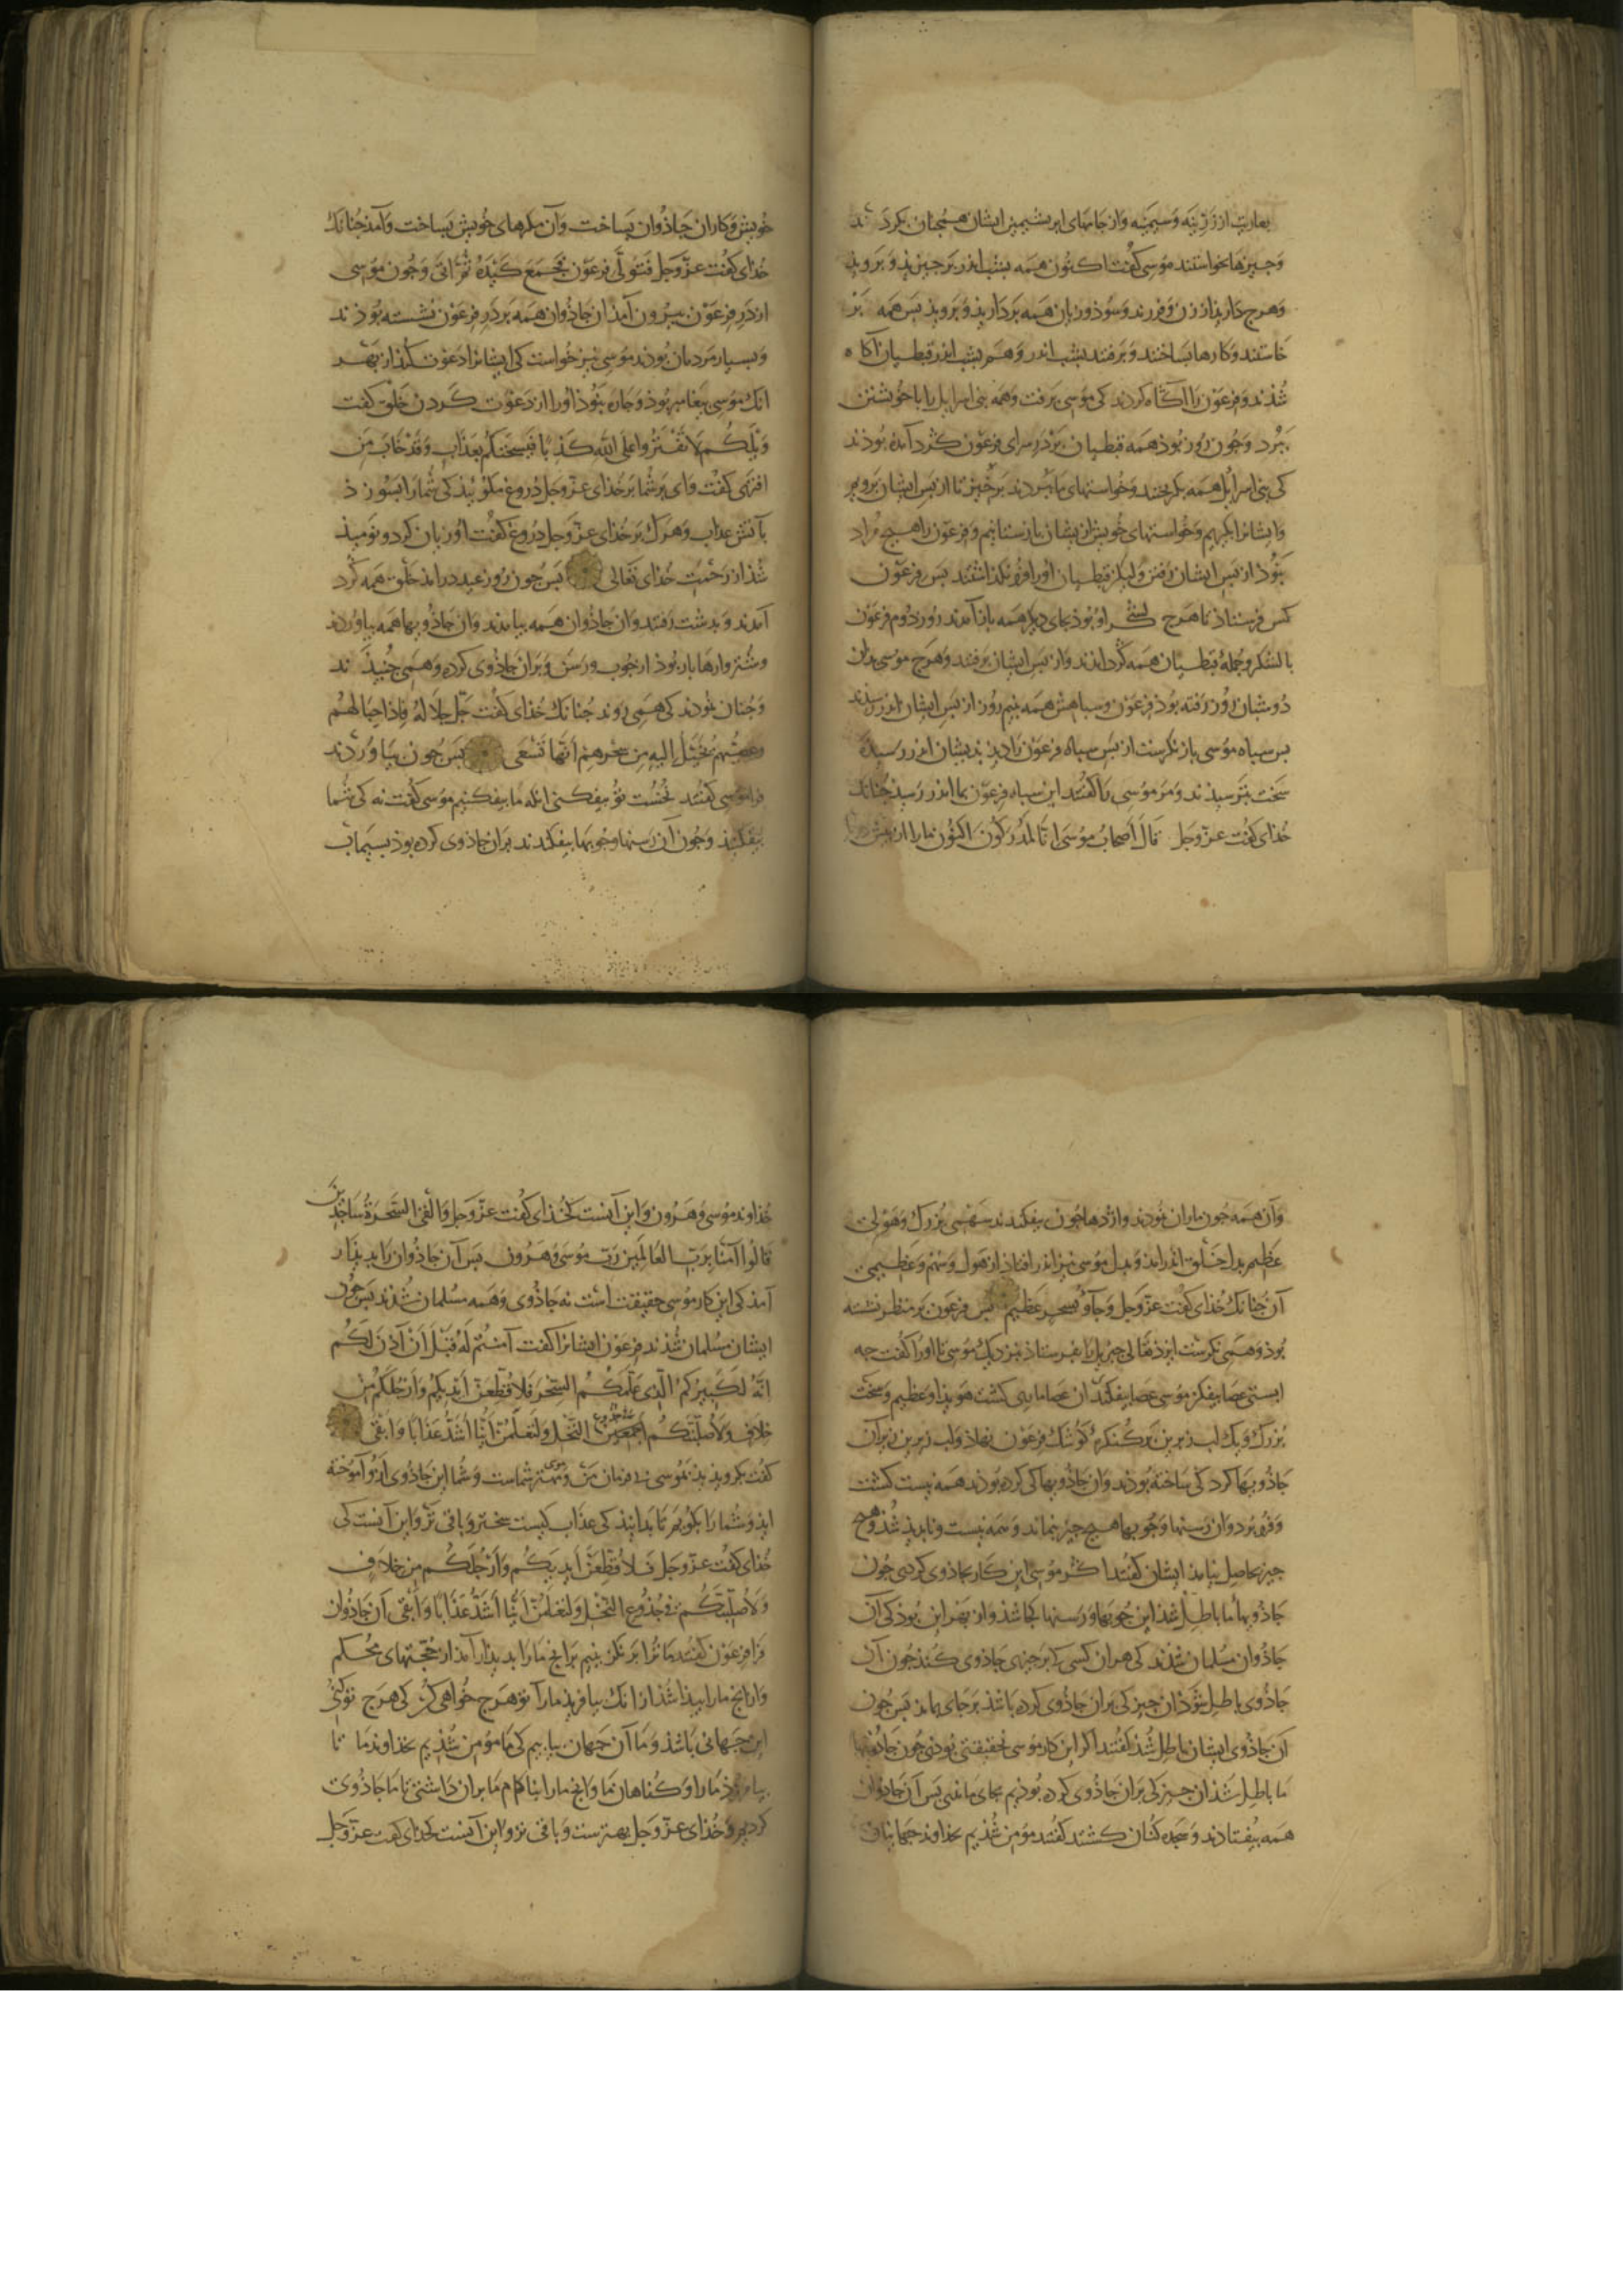 بعاریت از زرینه وسیمینه واز جامهای ابریشمین ایشان همچنان بکردند
وجیزها بخواستند موسی کفت اکنون همه بشب اندر برجینید وبروید
وهرج دارید از زن وفرزند وستوذ وزیان همه بردارید وبروید بس همه بر
خاستند وکارها بساختند وبرفتند بشب اندر وهم بشب اندر قبطیان اکاه
شذند وفرعون را اکاه کردند کی موسی برفت وهمه بنی اسرایل را با خویشتن
ببرد وجون روز بوذ همه قبطیان بر در سرای فرعون کرد آمده بوذند
کی بنی اسرایل همه بکریختند وخواستهای ما ببردند برخیز تا از بس ایشان برویم
وایشانرا بکیریم وخواستهای خویش از یشان باز ستانیم وفرعون را هیج مراد
نبوذ از بس ایشان رفتن ولیکن قبطیان اورا فرو نکذاشتند بس فرعون
کس فرستاذ تا هرج لشکر او بوذ بجای دیکر همه باز آمدند روز دوم فرعون
با لشکر وجمله قبطیان همه کرد اندند واز بس ایشان برفتند وهرج موسی بدان
دو شبان روز رفته بوذ فرعون وسباهش همه بنیم روز از بس ایشان اندر رسیدند
بس سباه موسی باز نکرست از بس سباه فرعون را دیذند بدیشان اندر رسیده
سخت بترسیذند ومر موسی را کفتند این سباه فرعون بما اندر رسیذ جنانک
خذای کفت عزوجل قال اصحاب موسی انا لمدرکون اکنون مارا از
خویش وکاران جاذوان بساخت وآن مکرهای خویش بساخت وآمد جنانک
خذای کفت عزوجل فتولی فرعون فجمع کیده ثم اتی وجون موسی
از در فرعون بیرون آمذ ان جاذوان همه بر در فرعون نشسته بوذند
وبسیار مردمان بوذند موسی نیز خواست کی ایشانرا دعوت کند از بهر
انک موسی بیغامبر بوذ وجاره نبوذ اورا از دعوت کردن خلق کفت
ویلکم لا تفتروا علی الله کذبا فیسحتکم بعذاب وقد خاب من
افتری کفت وای بر شما بر خذای عزوجل دروغ مکوئیذ کی شمارا بسوزذ
بآتش عذاب وهرک بر خذای عزوجل دروغ کفت او زیان کرد ونومیذ
شذ از رحمت خذای تعالی بس جون روز عید در امذ خلق همه کرد
آمدند وبدشت رفتند وان جاذوان همه بیامدند وان جاذویها همه بیاوردند
وشتروارها بار بوذ از جوب ورسن وبران جاذوی کرده وهمی جنبیذند
وجنان نمودند کی همی روند جنانک خذای کفت جل جلاله فاذا حبالهم
وعصیهم یخیل الیه من سحرهم انها تسعی بس جون بیاوردند
فرا موسی کفتند نخست تو بیفکنی ازله ما بیفکنیم موسی کفت نه کی شما
بیفکنید وجون آن رسنها وجوبها بیفکندند بران جاذوی کرده بوذ بسیماب
وآن همه جون ماران نمودند واژدها جون بیفکندند سهمی بزرک وهولی
عظیم بدل خلق اندر امد وبدل موسی نیز اندر افتاذ از هول وسهم وعظیمی
آن جنانک خذای کفت عزوجل وجآؤ بسحر عظیم بس فرعون بر منظر نشسته
بوذ وهمی نکرست ایزذ تعالی جبریل را بفرستاذ نزدیک موسی تا اورا کفت جه
ایستی عصا بیفکن موسی عصا بیفکند ان عصا ماری کشت هویذا وعظیم وسخت
بزرک ویک لب زیرین بر کنکره کوشک فرعون نهاذ ولب زیرین زیر آن
جاذویها کرد کی ساخته بوذند وان جاذویها کی کرده بوذند همه نیست کشت
وفرو برد وان رسنها وجوبها هیج جیز نماند وهمه نیست ونابدیذ شذ وهیج
جیز بحاصل نیامذ ایشان کفتند اکر موسی این کار بجاذوی کردی جون
جاذویها ما باطل شذ این جوبها ورسنها کجا شذ واز بهر این بوذ کی آن
جاذوان مسلمان شدند کی هران کسی کا بر جیزی جاذوی کند جون آن
جاذوی باطل شوذ ان جیز کی بران جاذوی کرده باشذ بر جای بماند بس جون
ان جاذوی ایشان باطل شذ کفتند اکر این کار موسی نحقیقتی بوذی جون جاذویها
ما باطل شذ ان جیز کی بران جاذوی کرده بوذیم بجای ماندی بس آن جاذوان
همه بیفتادند وسجده کنان کشتند کفتند مومن شذیم بخداوند جهانیان
خذاوند موسی وهرون واین آنست کخذای کفت عزوجل والقی السحرة ساجدین
قالوا آمنا برب العالمین رب موسی وهرون بس آن جاذوان را بدیذار
آمذ کی این کار موسی حقیقت است نه جاذوی وهمه مسلمان شذند بس جون
ایشان مسلمان شذند فرعون ایشانرا کفت آمنتم له قبل ان آذن لکم
انه لکبیرکم الذی علمکم السحر فلاقطعن ایدیکم وارجلکم من
خلاف ولاصلبنکم اجمعین فی جذوع النخل ولتعلمن اینا اشد عذابا وابقی
کفت بکرویذیذ بموسی بی فرمان من وموسی مهتر شماست وشما این جاذوی ازو آموخته
ایذ وشمارا بکویم تا بدانیذ کی عذاب کیست سختر وباقی تر واین آنست کی
خذای کفت عزوجل فلاقطعن ایدیکم وارجلکم من خلاف
ولاصلبنکم فی جذوع النخل ولتعلمن اینا اشد عذابا وابقی آن جاذوان
فرا فرعون کفتند ما ترا بر نکزینیم بر انج مارا بدیذار آمذ از حجتهای محکم
وازانج مارا بیذا شذ از انک بیافریذ مارا تو هرج خواهی کن کی هرج تو کنی
این جهانی باشذ وما آن جهان بیابیم کی ما مومن شذیم بخذاوند ما تا
بیامرزذ مارا وکناهان ما وانج مارا بناکام ما بران داشتی تا ما جاذوی
کردیم وخذای عزوجل بهترست وباقی تر واین آنست کخذای کفت عزوجل